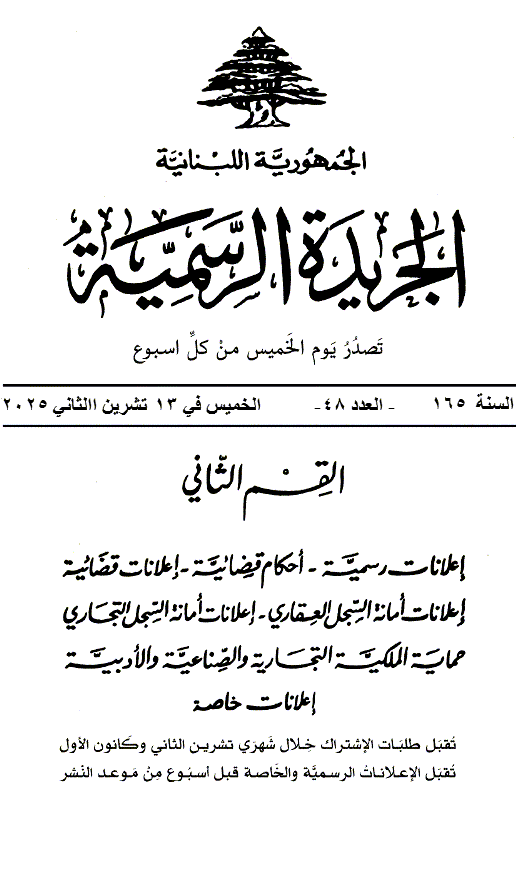 الجُمهُوريَّة اللبْنانيَّة
الجَريدَة الرسَّمِيَّة
تَصدُرُ يَوم الخَميس منْ كلِّ اسبوع
السنة ١٦٥ - العدد ٤٨- الخميس في ١٣ تشرين االثاني ٢٠٢٥
القِسْم الثّاني
إعلانات رسميَّة - أحكام قضائيَّة - إعلانات قضائية
إعلانات أمانة السِّجل العقاري - إعلانات أمانة السِّجل التجاري
حماية الملكيَّة التجارية والصِّناعيَّة والأدبيَّة
إعلانات خاصة
تُقبَل طلبَات الإشتراك خِلال شَهرَي تشرين الثاني وكَانون الأول
تُقبَل الإعلاناتُ الرسميَّة والخَاصة قبل أسبُوع مِنْ مَوعد النّشر